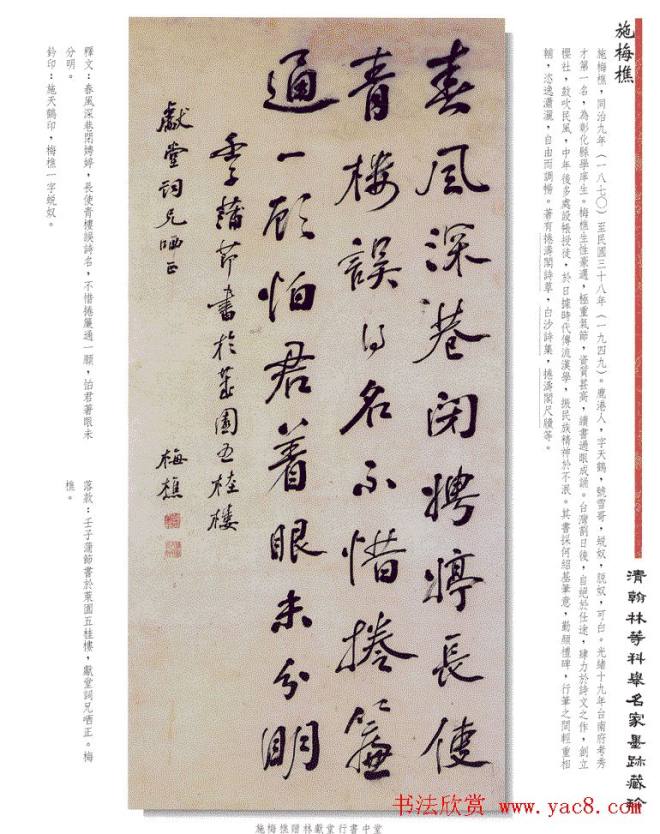 清翰林等科舉名家墨跡藏珍
施梅樵
施梅樵，同治九年（一八七〇）至民國三十八年（一九四九）。鹿港人，字天鶴，號雪哥，蛻奴，脫奴，可白。光緒十九年台南府考秀
才第一名，為彰化縣學庠生。梅樵生性豪邁，極重氣節，資質甚高，讀書過眼成誦。台灣割日後，自絕於仕途，肆力於詩文之作，創立
櫻社，鼓吹民風，中年後多處設帳授徒，於日據時代傳流漢學，振民族精神於不泯。其書採何紹基筆意，勤顏禮碑，行筆之間輕重相
輔，恣逸瀟灑，自由而調暢。著有捲濤閣詩草，白沙詩集，捲濤閣尺牘等。
春風深巷閉娉婷長使
青樓誤得名不惜捲簾
通一顧怕君着眼未分明
壬子蒲節書於萊園五桂樓
獻堂詞兄哂正 梅樵
釋文：春風深巷閉娉婷，長使青樓誤詩名，不惜捲簾通一顧，怕君著眼未
分明。
鈐印：施天鶴印，梅樵一字蛻奴。
落款：壬子蒲節書於萊園五桂樓，獻堂詞兄哂正。梅
樵。
施梅樵贈林獻堂行書中堂
书法欣赏 www.yac8.com